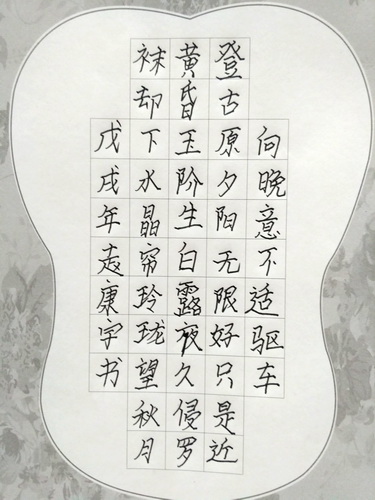 向晚意不适驱车
登古原夕阳无限好只是近
黄昏玉阶生白露夜久侵罗
袜却下水晶帘玲珑望秋月
戊戌年志康字书